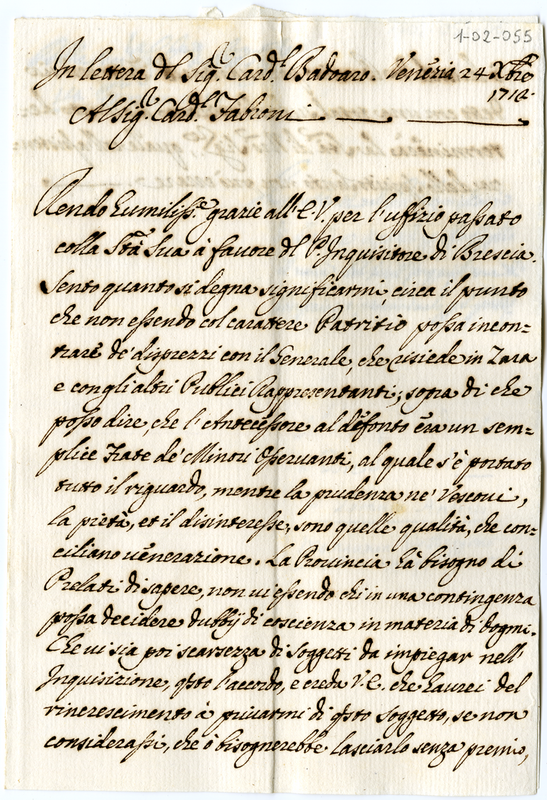 1-02-055
In lettera dl Sig.r Card.l Badoaro. Venezia 24 Xbre
1712.
Al Sig.r Card.l Fabroni
Rendo humiliss.e grazie all'E.V. per l'uffizio passato
colla Stà Sua à favore dl P. Inquisitore di Brescia.
Sento quanto si degna significarmi, circa il punto
che non essendo col carattere Patritio possa incon=
trare de' disprezzi con il Generale, che risiede in Zara
e con gli altri Publici Rappresentanti; sopra di che
posso dire, che l'Antecessore al defonto era un sem=
plice Frate de' Minori Osservanti, al quale s'è portato
tutto il riguardo, mentre la prudenza ne' Vescovi,
la pietà, et il disinteresse, sono quelle qualità, che con=
ciliano venerazione. La Provincia hà bisogno di
Prelati di sapere, non vi essendo chi in una contingenza
possa decidere dubbij di coscienza in materia di dogmi.
Che vi sia poi scarsezza di soggetti da impiegar nell'
Inquisizione, qsto l'accordo, e creda V.E. che haurei del
rincrescimento à privarmi di qsto soggetto, se non
considerassi, che ò bisognerebbe lasciarlo senza premio,